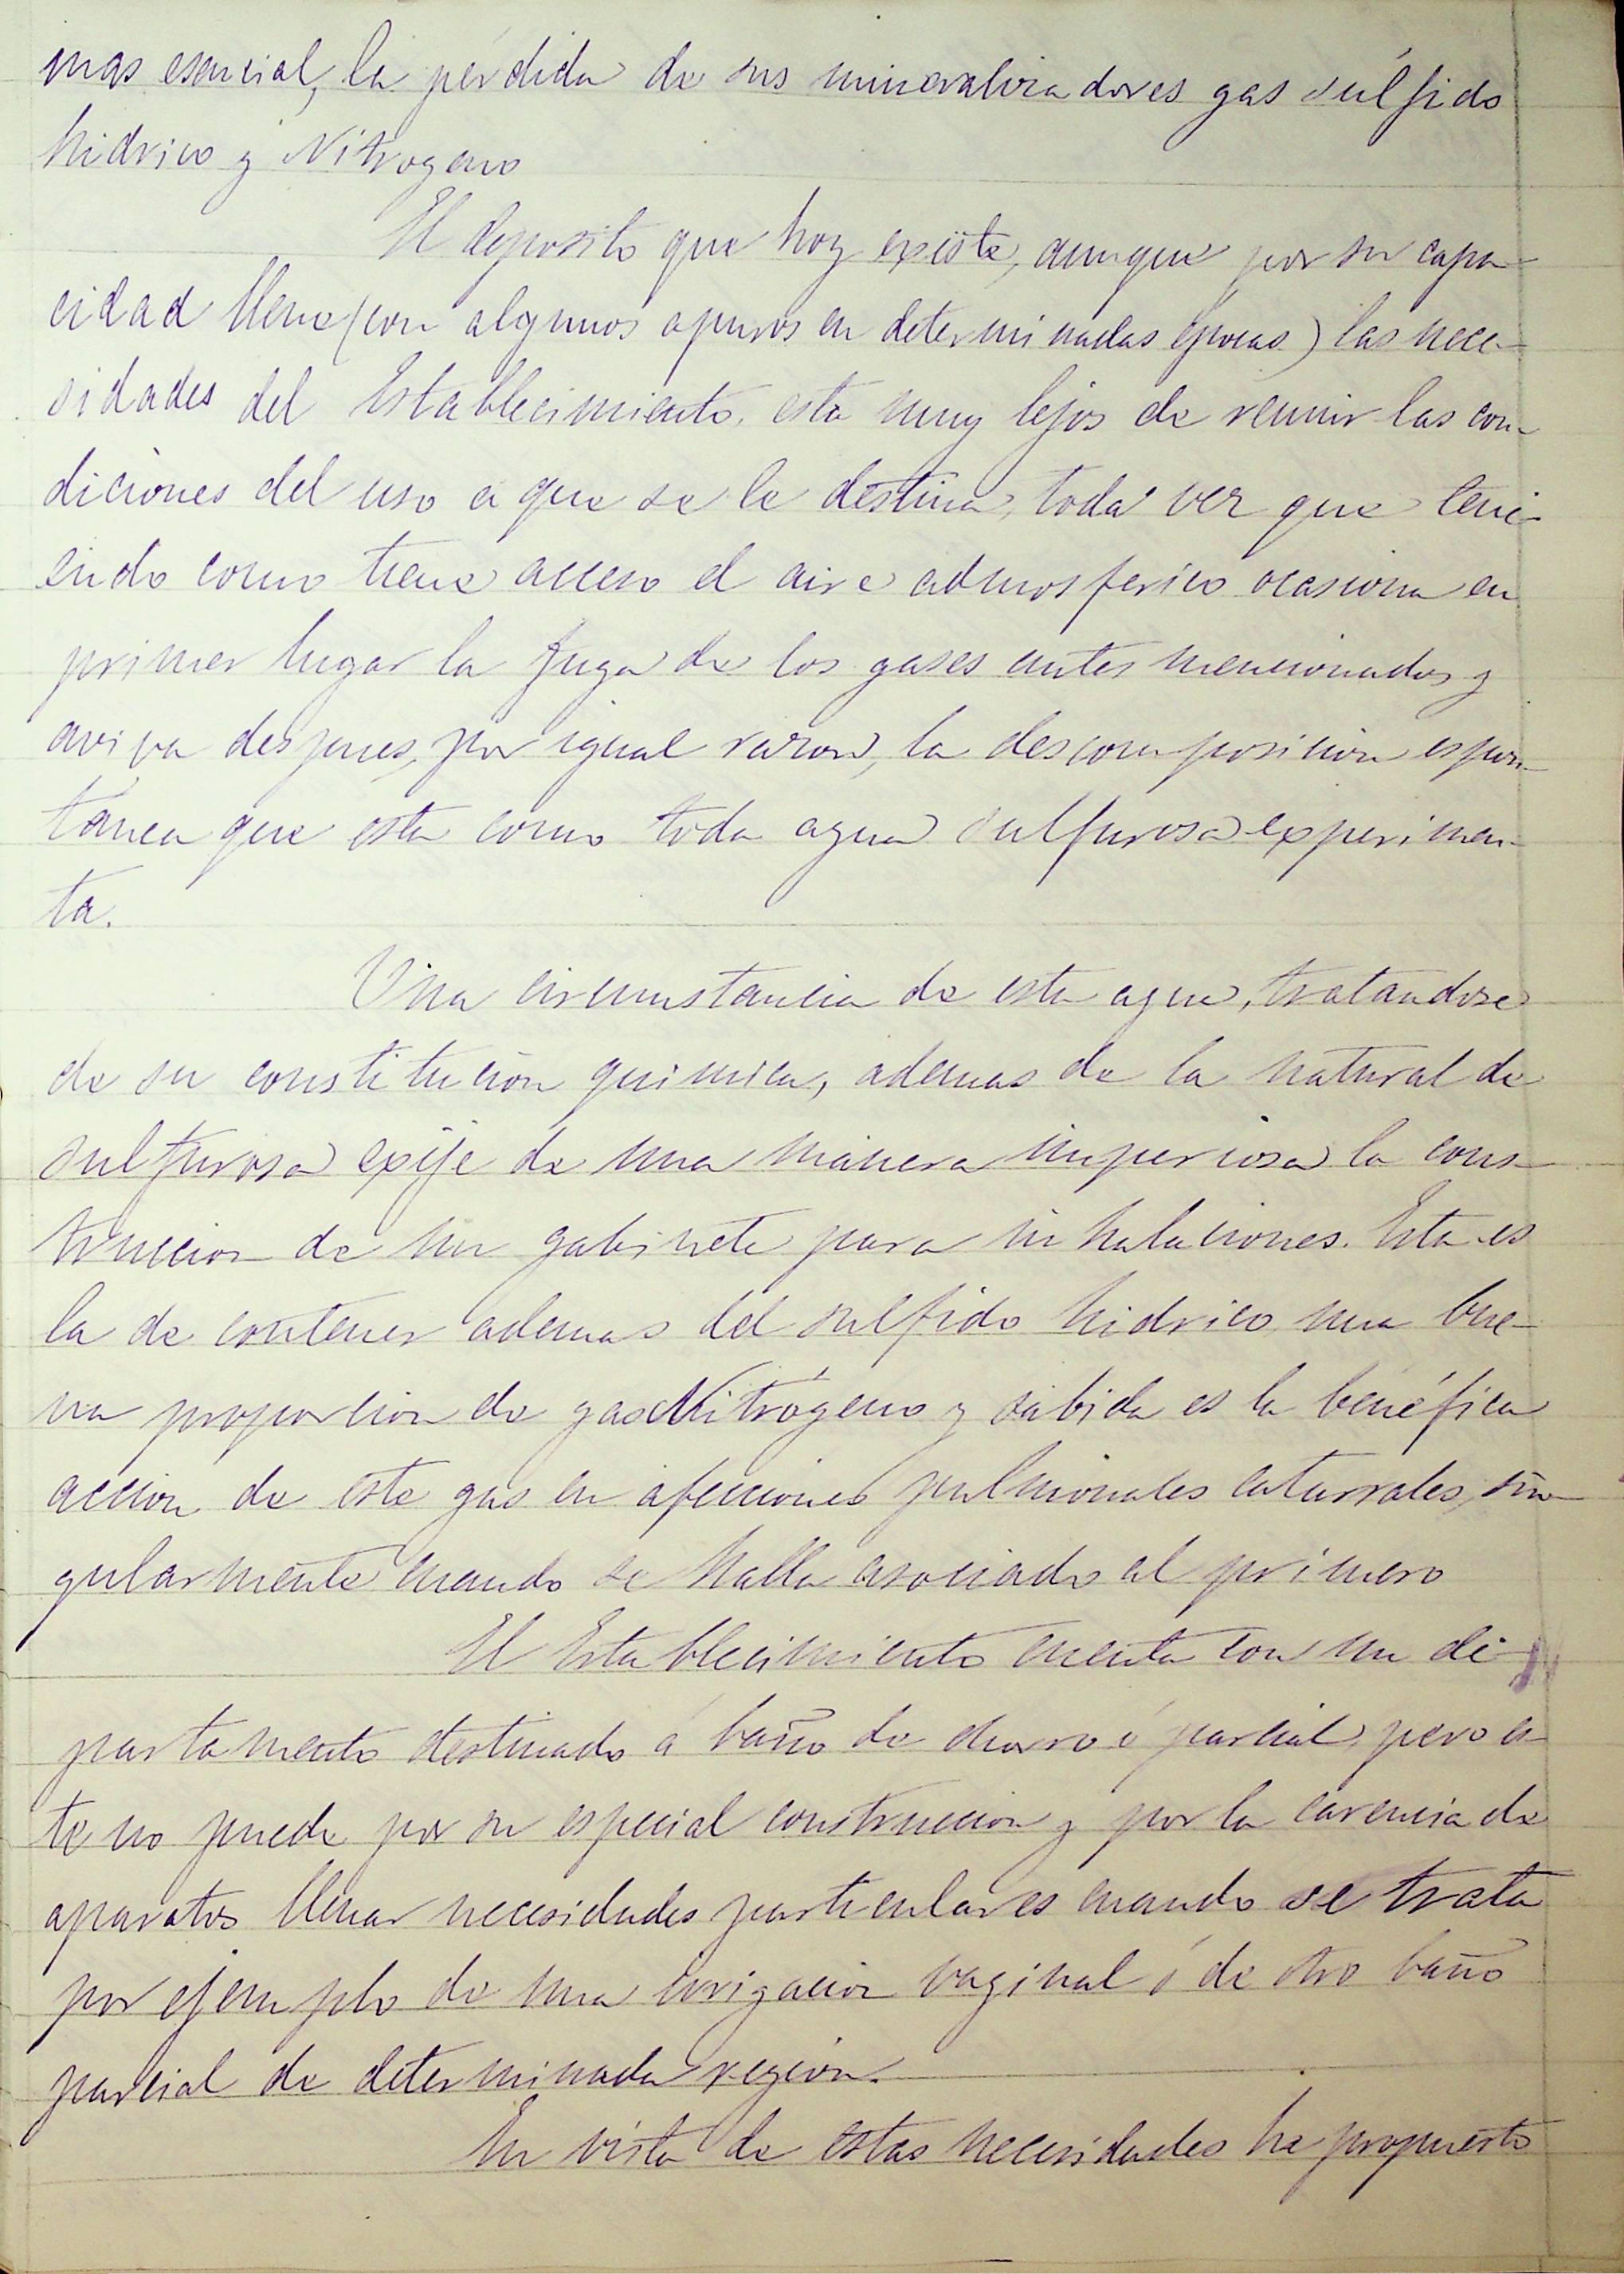 mas esencial, la pérdida de sus mineralizadores gas súlfido
hidrico y Nitrogeno
El deposito que hoy existe, aunque por su capa-
cidad llene (con algunos apuros en determinadas epocas) las nece-
sidades del Establecimiento, esta muy lejos de reunir las con-
diciones del uso a que se le destina, toda vez que teni-
endo como tiene acceso el aire admosferico ocasiona en
primer lugar la fuga de los gases antes mencionados y
aviva despues, por igual razon, la descomposicion espon-
tanea que esta como toda agua sulfurosa experimen-
ta.
Una circunstancia de esta agua, tratandose
de su constitucion quimica, ademas de la natural de
sulfurosa exije de una manera imperiosa la cons-
truccion de un gabinete para inhalaciones. Esta es
la de contener ademas del sulfido hidrico una bue-
na proporcion de gas Nitrógeno y sabida es la benéfica
accion de este gas en afecciones pulmonales catarrales, sin-
gularmente cuando se halla asociado al primero
El Establecimiento cuenta con un de-
partamento destinado á baño de chorro ó parcial, pero es-
te no puede por su especial construccion y por la carencia de
aparatos llenar necesidades particulares cuando se trata
por ejemplo de una irrigacion vaginal ó de otro baño
parcial de determinada region.
En vista de estas necesidades he propuesto